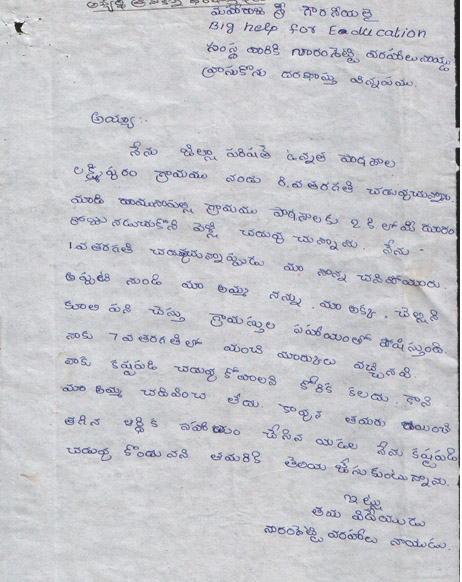 మహారాజశ్రీ గౌరవనీయులైన
Big help for Eadducation
సంస్థ వారికి నారంశెట్టి వరహాలు నాయుడు
వ్రాసుకొను దరఖాస్తు విన్నపము.
అయ్యా :-
నేను జిల్లా పరిషత్ ఉన్నత పాఠశాల
లక్ష్మీపురం గ్రామము నందు 8.వ తరగతి చదువుచున్నాను
మాది గ్రామం పాఠశాలకు 2 కి.లో మీ దూరం
నడుచుకొని వెళ్ళి చదువు చున్నాను. నేను
1వ తరగతి చదువుచున్నప్పుడు మా నాన్న చనిపోయారు.
అప్పటి నుండి మా అమ్మ నన్ను, మా అక్క, చెల్లిని
కూలి పని చేస్తు గ్రామస్తుల సహాయంతో పోషిస్తుంది.
నాకు 7వ తరగతి లో మంచి మార్కులు వచ్చినవి.
నాకు కష్టపడి చదువు కోవాలని కోరిక కలదు. కాని
మా అమ్మ చదివించ లేదు. కావున తమరు దయించి
తగిన ఆర్థిక సహాయం చేసిన యెడల నేను కష్టపడి
చదువు కొందునని తమరికి తెలియ జేసుకుంటున్నాను.
ఇట్లు
తమ విధేయుడు
నారంశెట్టి వరహాలు నాయుడు.